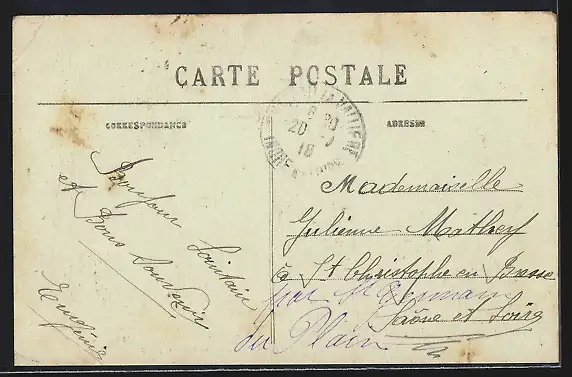 CARTE POSTALE
CORRESPONDANCE
ADRESSE
LA VALLIÈRE
20
18
INDRE
Bonjour Lointain
et Bons Souvenirs
Eugénie
Mademoiselle
Julienne Mathey
à St Christophe en Bresse
par St Germain
du Plain
Saône et Loire